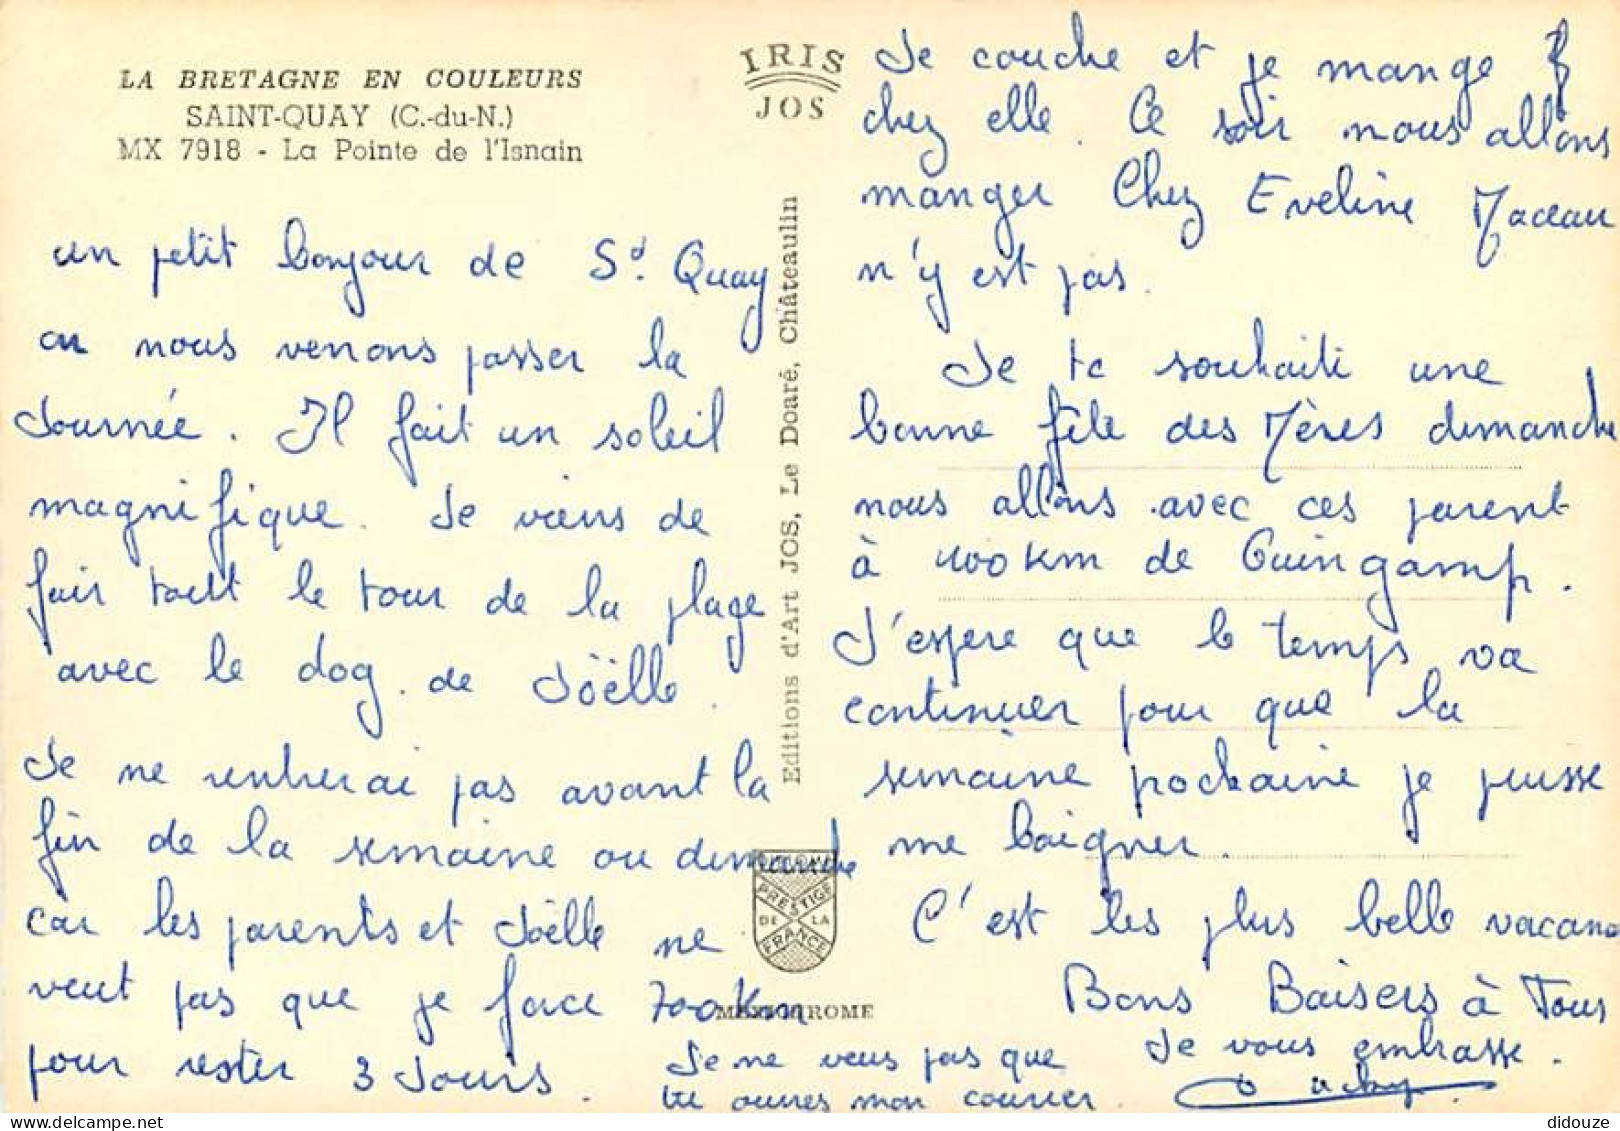 LA BRETAGNE EN COULEURS
SAINT-QUAY (C.-du-N.)
MX 7918 - La Pointe de l'Isnain
un petit bonjour de St. Quay
ou nous venons passer la
Journée. Il fait un soleil
magnifique. Je viens de
fair tout le tour de la plage
avec le dog. de Joëlle.
Je ne rentrerai pas avant la
fin de la semaine ou dimanche
car les parents et Joëlle ne
veut pas que je face 700 km
pour rester 3 Jours.
Je ne veus pas que
tu ouvres mon courrier.
IRIS
JOS
Editions d'Art JOS, Le Doaré, Châteaulin
PRESTIGE
DE LA
FRANCE
MEXICHROME
Je couche et je mange
chez elle. Ce soir nous allons
manger Chez Eveline
n'y est pas.
Je te souhaite une
bonne fête des Mères dimanche
nous allons avec ces parent
à 100 km de Guingamp.
J'espere que le temps va
continuer pour que la
semaine prochaine je puisse
me baigner.
C'est les plus belle vacance
Bons Baisers à Tous
Je vous embrasse.